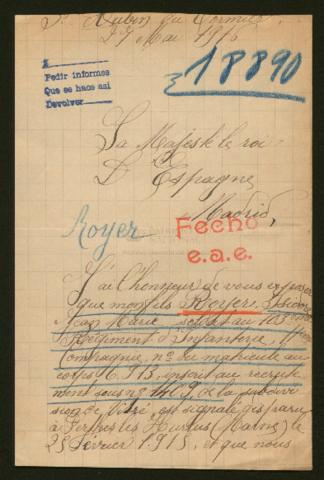 St Aubin du Cormier,
27 Mai 1916
Pedir informes
Que se hace así
Devolver
18890
Sa Majesté le roi
D'Espagne
Madrid,
Royer
Fecho
e.a.e.
J'ai l'honneur de vous exposer
que mon fils Royer,
Jean Marie, soldat au 103e
Régiment d'Infanterie, 11e
Compagnie, no du matricule au
corps 6.915, inscrit au recrute
ment sous no 1409 de la subdivi
sion de Vitré, est signalé disparu
à Perthes les Hurlus (Marne) le
25 Février 1.915, et que nous